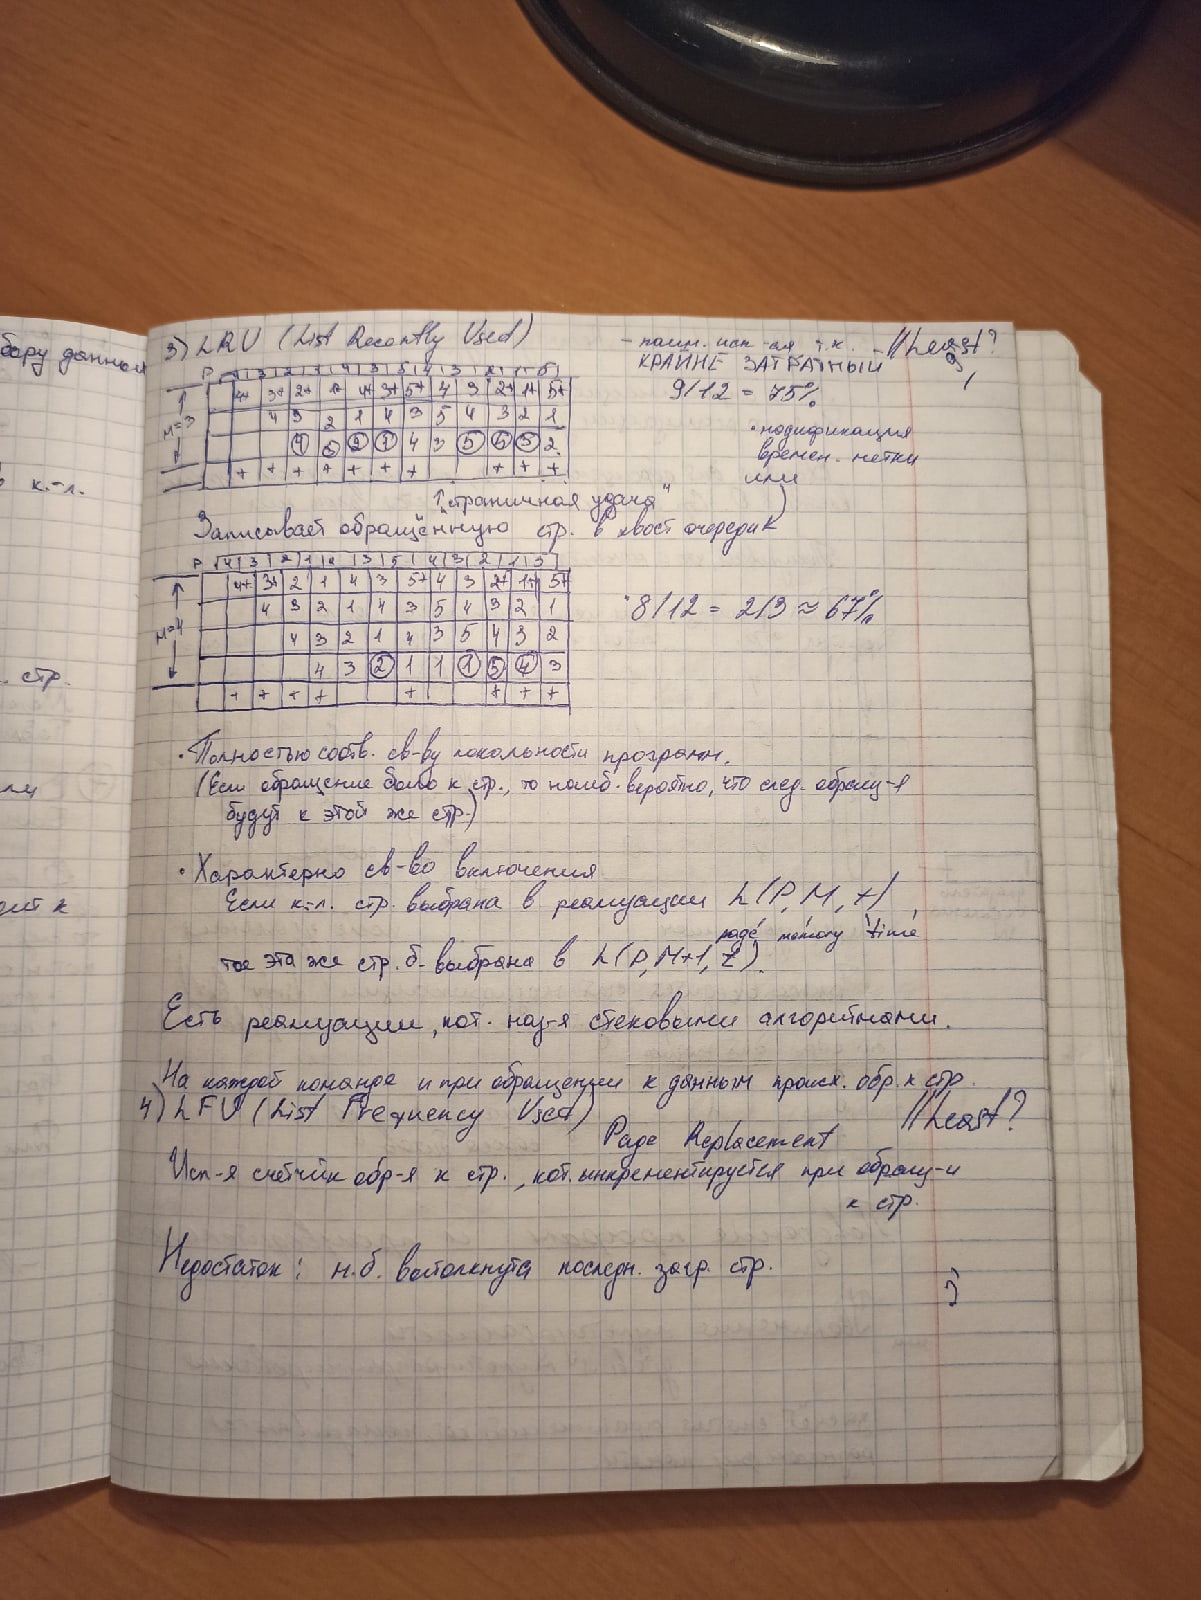 бору данной
к.-л.
стр.
3) LRU (List Recently Used)
- полн. исп-ся т.к. - //Least?
КРАЙНЕ ЗАТРАТНЫЙ
P 4 3 2 1 4 3 5 4 3 2 1 5
M=3
4+ 3+ 2+ 1+ 4+ 3+ 5+ 4 3 2+ 1+ 5+
4 3 2 1 4 3 5 4 3 2 1
4 3 2 1 4 3 5 5 3 2
+ + + + + + + + + +
9/12 = 75%
• модификация
времен. метки
или
↑ "страничная удача"
Записывает обращённую стр. в хвост очереди
P 4 3 2 1 4 3 5 4 3 2 1 5
M=4
4+ 3+ 2 1 4 3 5+ 4 3 2+ 1+ 5+
4 3 2 1 4 3 5 4 3 2 1
4 3 2 1 4 3 5 4 3 2
4 3 2 1 1 1 5 4 3
+ + + + + + + +
8/12 = 2/3 ≈ 67%
• Полностью соотв. св-ву локальности программ.
(Если обращение было к стр., то наиб. вероятно, что след. обращ-я
будут к этой же стр.)
• Характерно св-во включения
Если к.-л. стр. выбрана в реализации L(P, M, t),
page memory time
то эта же стр. б. выбрана в L(P, M+1, t).
Есть реализации, кот. наз-я стековыми алгоритмами.
На каждой команде и при обращении к данным происх. обр. к стр.
4) LFU (List Frequency Used) //Least?
Page Replacement
Исп-я счётчик обр-я к стр., кот. инкрементируется при обращ-и
к стр.
Недостаток: м.б. вытолкнута последн. загр. стр.